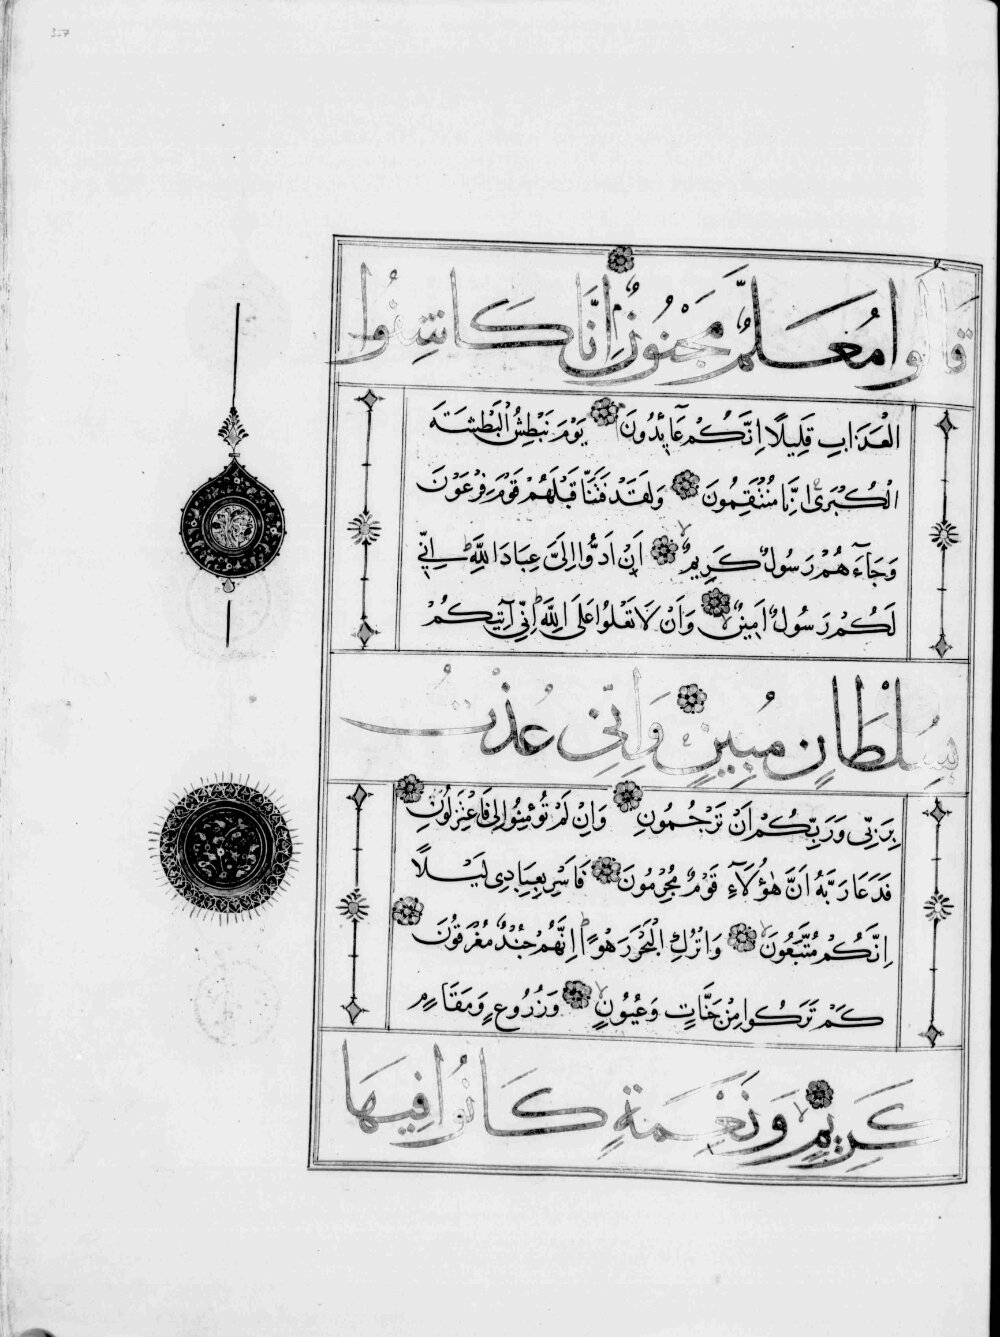 قَالُوا مُعَلَّمٌ مَجْنُونٌ اِنَّا كَاشِفُوا
الْعَذَابِ قَلِيلًا اِنَّكُمْ عَآئِدُونَ يَوْمَ نَبْطِشُ الْبَطْشَةَ
الْكُبْرَىٰ اِنَّا مُنْتَقِمُونَ وَلَقَدْ فَتَنَّا قَبْلَهُمْ قَوْمَ فِرْعَوْنَ
وَجَآءَهُمْ رَسُولٌ كَرِيمٌ اَنْ اَدُّوا اِلَيَّ عِبَادَ اللّٰهِ اِنِّي
لَكُمْ رَسُولٌ اَمِينٌ وَاَنْ لَا تَعْلُوا عَلَى اللّٰهِ اِنِّي آتِيكُمْ
بِسُلْطَانٍ مُبِينٍ وَاِنِّي عُذْتُ
بِرَبِّي وَرَبِّكُمْ اَنْ تَرْجُمُونِ وَاِنْ لَمْ تُؤْمِنُوا لِي فَاعْتَزِلُونِ
فَدَعَا رَبَّهُ اَنَّ هٰؤُلَآءِ قَوْمٌ مُجْرِمُونَ فَاَسْرِ بِعِبَادِي لَيْلًا
اِنَّكُمْ مُتَّبَعُونَ وَاتْرُكِ الْبَحْرَ رَهْوًا اِنَّهُمْ جُنْدٌ مُغْرَقُونَ
كَمْ تَرَكُوا مِنْ جَنَّاتٍ وَعُيُونٍ وَزُرُوعٍ وَمَقَامٍ
كَرِيمٍ وَنَعْمَةٍ كَانُوا فِيهَا